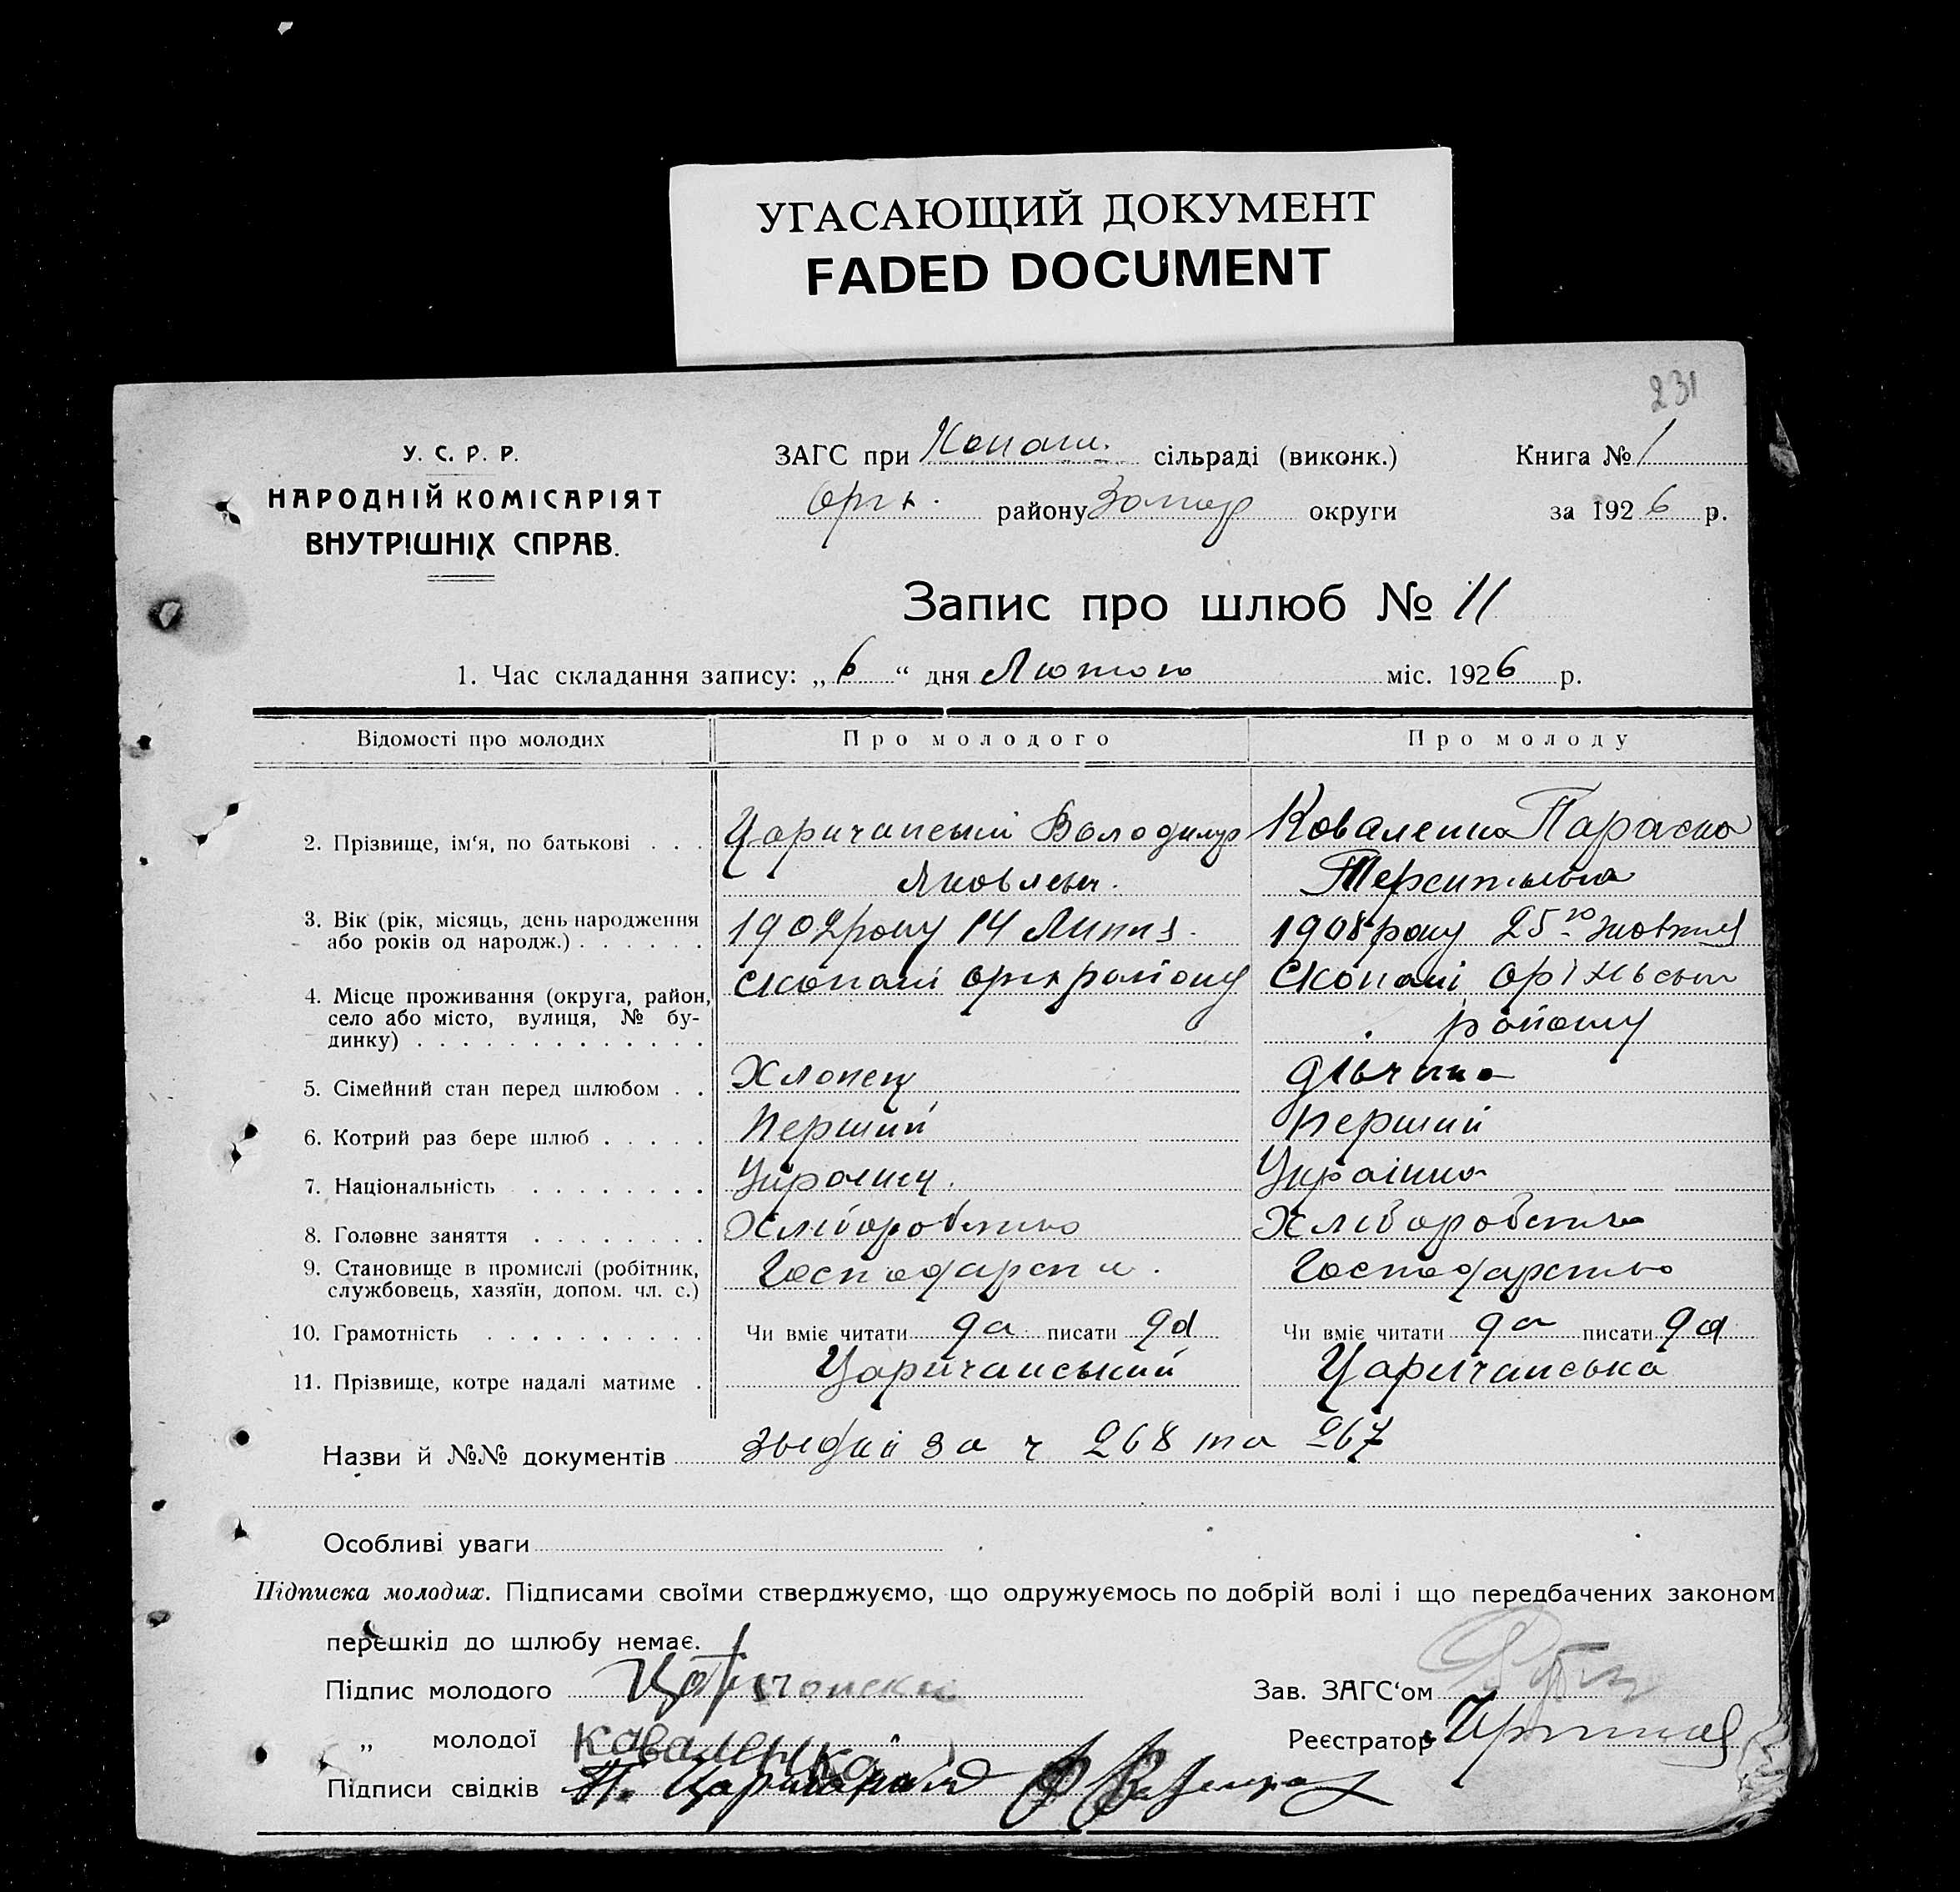 УГАСАЮЩИЙ ДОКУМЕНТ
FADED DOCUMENT
231
У. С. Р. Р.
НАРОДНІЙ КОМІСАРІЯТ
ВНУТРІШНІХ СПРАВ.
ЗАГС при Копані. сільраді (виконк.) Книга № 1
Оріх. району Запор округи за 1926 р.
Запис про шлюб № 11
1. Час складання запису: „6“ дня Лютого міс. 1926 р.
Відомості про молодих Про молодого Про молоду
2. Прізвище, ім‘я, по батькові . . . Царичанский Володимир Коваленко Параска
Яковлевич.
3. Вік (рік, місяць, день народження або років од народж.) . . . . . . 1902 року 14 Липня. 1908 року 25го жовтня
4. Місце проживання (округа, район, село або місто, вулиця, № будинку) . . . . . . . . . . . . . с Копані оріх району с Копані Оріхівськ
району
5. Сімейний стан перед шлюбом . . Хлопець дівчина
6. Котрий раз бере шлюб . . . . . Перший Перший
7. Національність . . . . . . . . Українець. Українка
8. Головне заняття . . . . . . . . Хліборобство Хліборобство
9. Становище в промислі (робітник, службовець, хазяїн, допом. чл. с.) Господарств. Господарство
10. Грамотність . . . . . . . . . . Чи вміє читати да писати да Чи вміє читати да писати да
11. Прізвище, котре надалі матиме . Царичанський Царичанська
Назви й №№ документів за ч 268 та 267
Особливі уваги
Підписка молодих. Підписами своїми стверджуємо, що одружуємось по добрій волі і що передбачених законом
перешкід до шлюбу немає.
Підпис молодого Царичански Зав. ЗАГС‘ом
„ молодої Коваленка Реєстратор
Підписи свідків